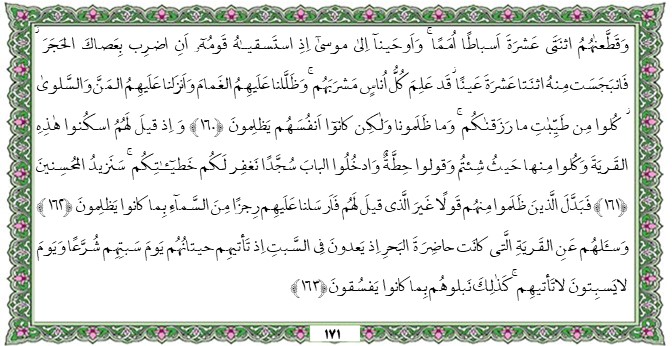 وَقَطَّعنٰهُمُ اثنَتَى عَشرَةَ اَسباطًا اُمَمًا ۚ وَاَوحَينآ اِلىٰ موسىٰٓ اِذِ استَسقىٰهُ قَومُهٗٓ اَنِ اضرِب بِعَصاكَ الحَجَرَ ۖ
فَانبَجَسَت مِنهُ اثنَتا عَشرَةَ عَينًا ۖ قَد عَلِمَ كُلُّ اُناسٍ مَشرَبَهُم ۚ وَظَلَّلنا عَلَيهِمُ الغَمامَ وَاَنزَلنا عَلَيهِمُ المَنَّ وَالسَّلوىٰ
ۖ كُلوا مِن طَيِّبٰتِ ما رَزَقنٰكُم ۚ وَما ظَلَمونا وَلٰكِن كانوٓا اَنفُسَهُم يَظلِمونَ ﴿١٦٠﴾ وَاِذ قيلَ لَهُمُ اسكُنوا هٰذِهِ
القَريَةَ وَكُلوا مِنها حَيثُ شِئتُم وَقولوا حِطَّةٌ وَادخُلُوا البابَ سُجَّدًا نَغفِر لَكُم خَطيٓـٰٔتِكُم ۚ سَنَزيدُ المُحسِنينَ
﴿١٦١﴾ فَبَدَّلَ الَّذينَ ظَلَموا مِنهُم قَولًا غَيرَ الَّذى قيلَ لَهُم فَاَرسَلنا عَلَيهِم رِجزًا مِنَ السَّمآءِ بِما كانوا يَظلِمونَ ﴿١٦٢﴾
وَسـَٔلهُم عَنِ القَريَةِ الَّتى كانَت حاضِرَةَ البَحرِ اِذ يَعدونَ فِى السَّبتِ اِذ تَأتيهِم حيتانُهُم يَومَ سَبتِهِم شُرَّعًا وَيَومَ
لا يَسبِتونَ لا تَأتيهِم ۚ كَذٰلِكَ نَبلوهُم بِما كانوا يَفسُقونَ ﴿١٦٣﴾
١٧١